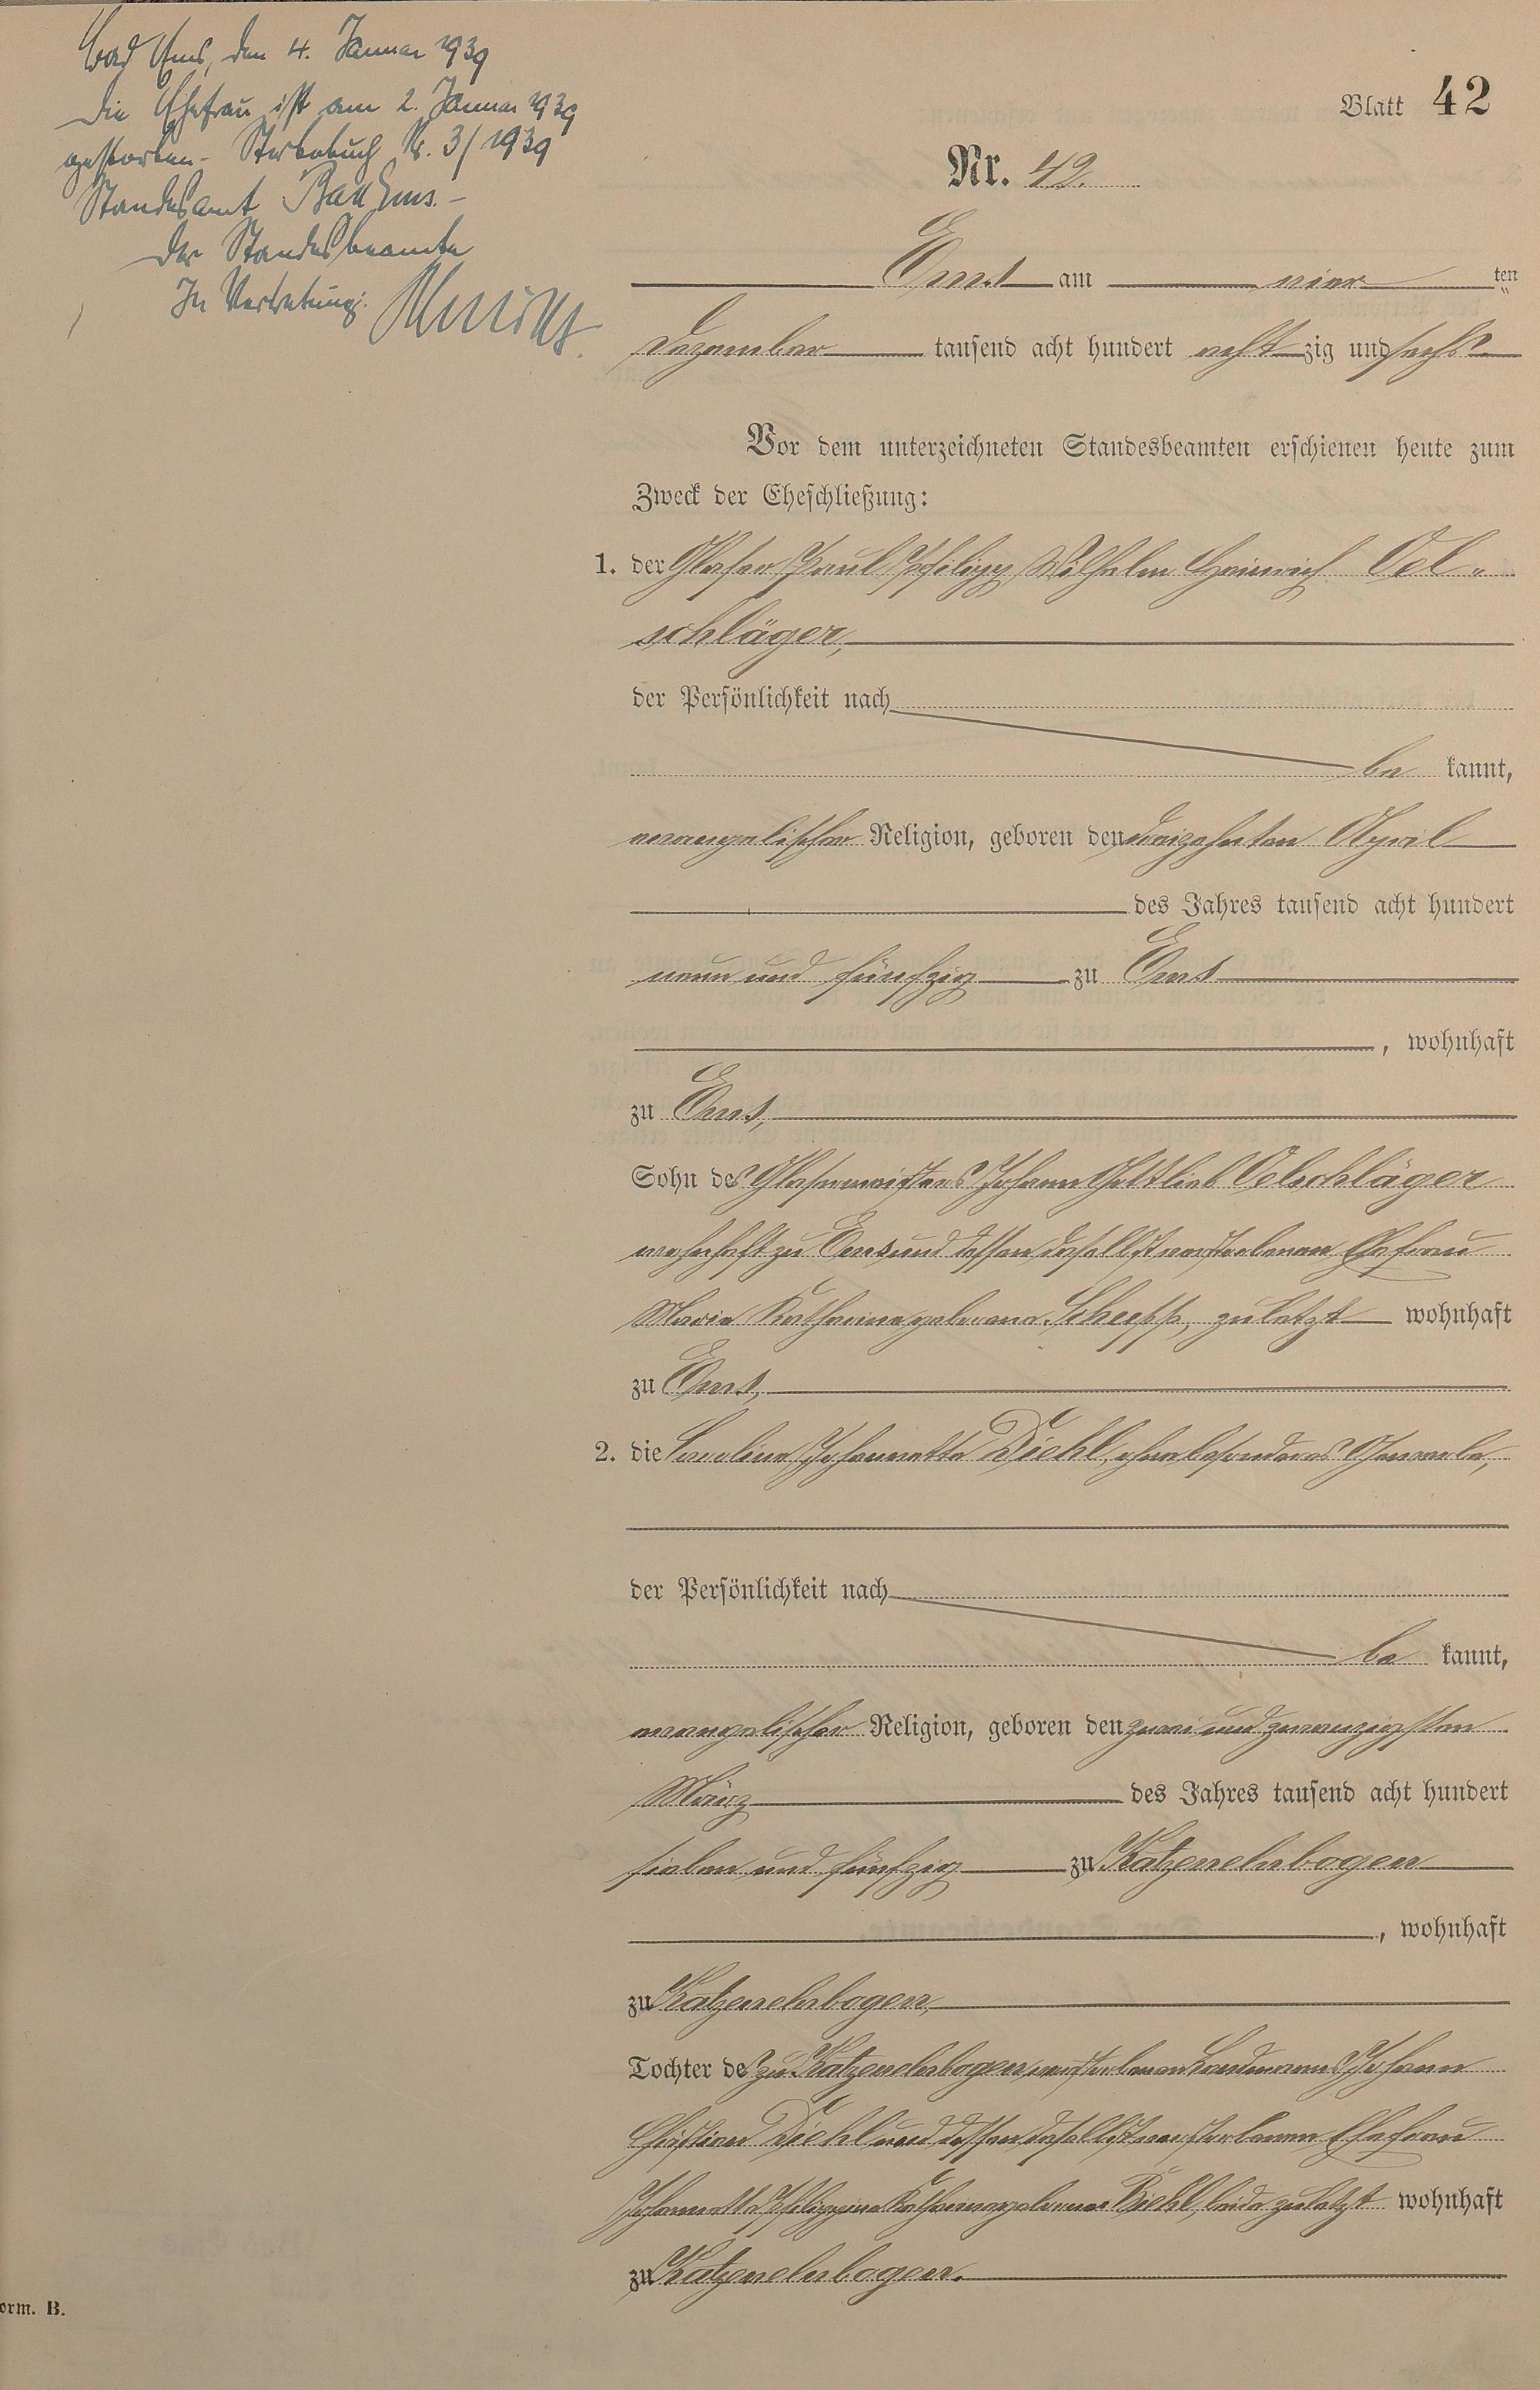 Bad Ems, den 4. Januar 1939
Die Ehefrau ist am 2. Januar 1939
gestorben - Sterbebuch Nr. 3/1939
Standesamt Bad Ems. -
Der Standesbeamte
In Vertretung:
Blatt 42
Nr. 42.
Ems am vier ten
Dezember tausend acht hundert acht zig und sechs
Vor dem unterzeichneten Standesbeamten erschienen heute zum
Zweck der Eheschließung:
1. der Glaser Paul Philipp Wilhelm Heinrich Oel-
schläger,
der Persönlichkeit nach
be kannt,
evangelischer Religion, geboren den dreizehnten April
des Jahres tausend acht hundert
neun und fünfzig zu Ems
, wohnhaft
zu Ems,
Sohn des Glasermeisters Johann Gottlieb Oelschläger
wohnhaft zu Ems und dessen daselbst verstorbenen Ehefrau
Maria Katharina geborene Schupp, zuletzt wohnhaft
zu Ems,
2. die Karoline Johannette Diehl, ohne besonderes Gewerbe,
der Persönlichkeit nach
be kannt,
evangelischer Religion, geboren den zwei und zwanzigsten
März des Jahres tausend acht hundert
sieben und fünfzig zu Katzenelnbogen
, wohnhaft
zu Katzenelnbogen,
Tochter des zu Katzenelnbogen verstorbenen Landmanns Johann
Christian Diehl und dessen daselbst verstorbenen Ehefrau
Johannette Philippine Katharina geborene Diehl, beide zuletzt wohnhaft
zu Katzenelnbogen.
orm. B.